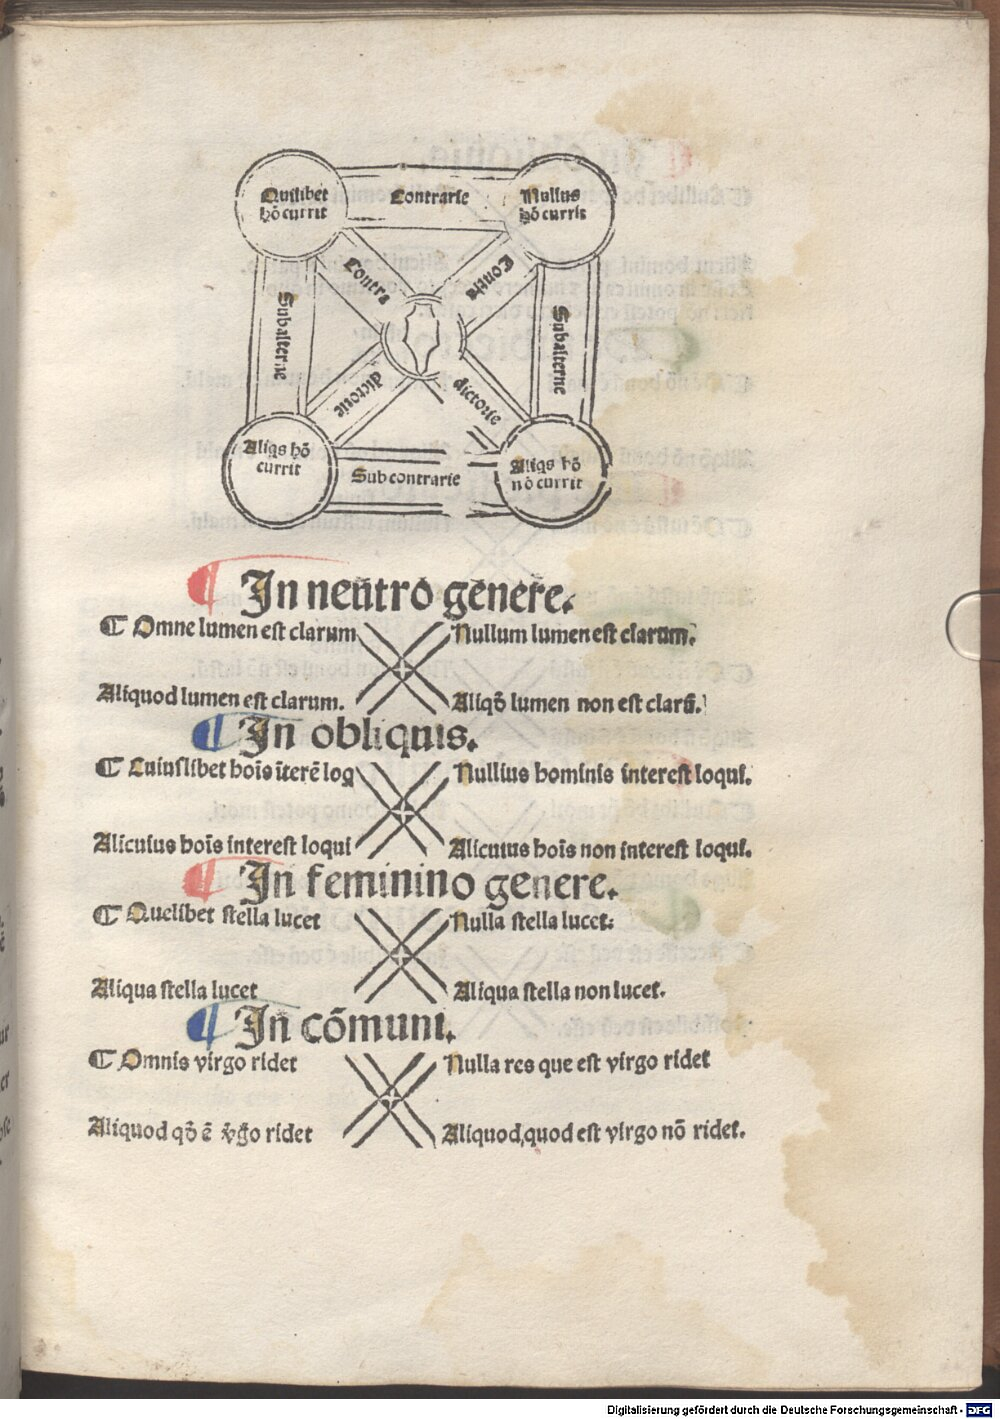 Quilibet Contrarie Nullus
hō currit hō currit
Contra Contra
Subalterne Subalterne
dictorie dictorie
Aliqs hō Aliqs hō
currit Subcontrarie nō currit
¶ In neutro genere.
¶ Omne lumen est clarum Nullum lumen est clarum.
Aliquod lumen est clarum. Aliqō lumen non est clarū.
¶ In obliquis.
¶ Cuiuslibet hoīs īterē loq Nullius hominis interest loqui.
Alicuius hoīs interest loqui Alicuius hoīs non interest loqui.
¶ In feminino genere.
¶ Quelibet stella lucet Nulla stella lucet:
Aliqua stella lucet Aliqua stella non lucet.
¶ In cōmuni.
¶ Omnis virgo ridet Nulla res que est virgo ridet
Aliquod qō ē v̄gō ridet Aliquod,quod est virgo nō ridet.
Digitalisierung gefördert durch die Deutsche Forschungsgemeinschaft - DFG